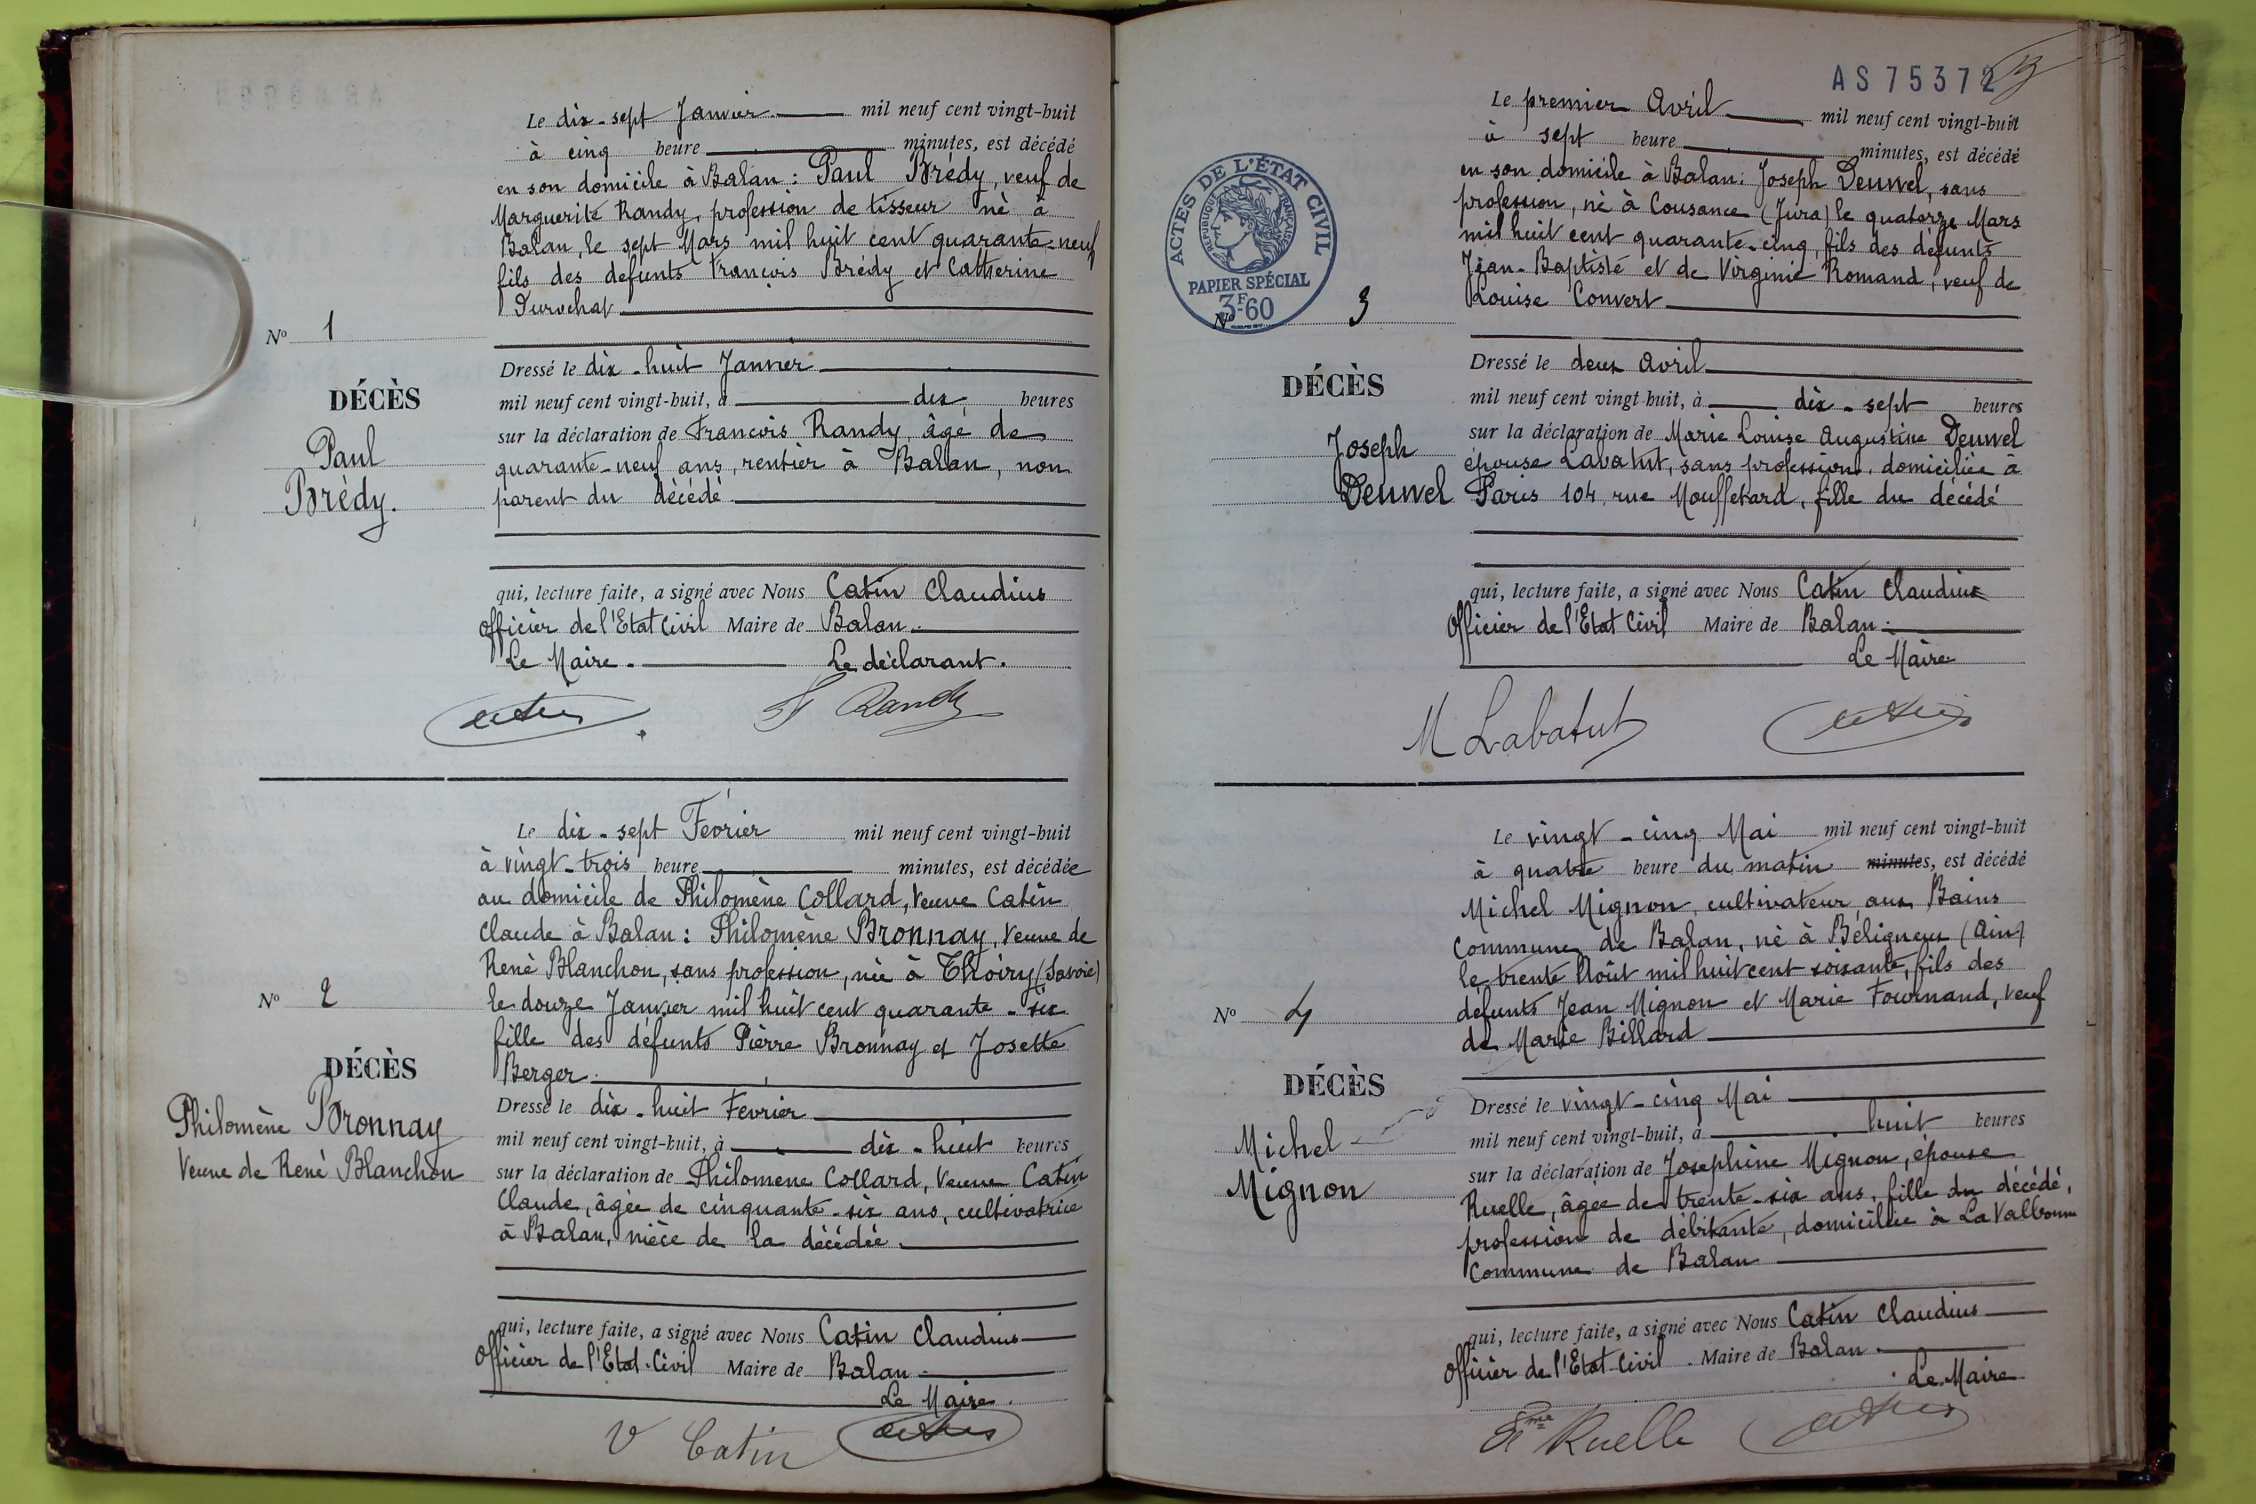 Le dix-sept Janvier mil neuf cent vingt-huit
à cinq heure minutes, est décédé
en son domicile à Balan : Paul Brédy, veuf de
Marguerite Randy, profession de tisseur né à
Balan, le sept Mars mil huit cent quarante-neuf
fils des défunts François Brédy et Catherine
Durochat
No 1
DÉCÈS
Paul
Brédy.
Dressé le dix-huit Janvier
mil neuf cent vingt-huit, à dix heures
sur la déclaration de François Randy, âgé de
quarante-neuf ans, rentier à Balan, non
parent du décédé
qui, lecture faite, a signé avec Nous Catin Claudius
Officier de l'Etat Civil Maire de Balan.
Le Maire. Le déclarant.
Catin F Randy
Le dix-sept Février mil neuf cent vingt-huit
à vingt-trois heure minutes, est décédée
au domicile de Philomène Collard, Veuve Catin
Claude à Balan : Philomène Bronnay, Veuve de
René Blanchon, sans profession, née à Thoiry (Savoie)
le douze Janvier mil huit cent quarante-six
fille des défunts Pierre Bronnay et Josette
Berger.
No 2
DÉCÈS
Philomène Bronnay
Veuve de René Blanchon
Dressé le dix-huit Février
mil neuf cent vingt-huit, à dix-huit heures
sur la déclaration de Philomène Collard, Veuve Catin
Claude, âgée de cinquante-six ans, cultivatrice
à Balan, nièce de la décédée.
qui, lecture faite, a signé avec Nous Catin Claudius
Officier de l'Etat-Civil Maire de Balan.
Le Maire.
V Catin Catin
AS 75372
ACTES DE L'ÉTAT CIVIL
RÉPUBLIQUE FRANÇAISE
PAPIER SPÉCIAL
3F.60
Le premier Avril mil neuf cent vingt-huit
à sept heure minutes, est décédé
en son domicile à Balan : Joseph Deuwel, sans
profession, né à Cousance (Jura) le quatorze Mars
mil huit cent quarante-cinq, fils des défunts
Jean-Baptiste et de Virginie Romand, veuf de
Louise Convert
No 3
DÉCÈS
Joseph
Deuwel
Dressé le deux Avril
mil neuf cent vingt-huit, à dix-sept heures
sur la déclaration de Marie Louise Augustine Deuwel
épouse Labatut, sans profession, domiciliée à
Paris 104, rue Mouffetard, fille du décédé
qui, lecture faite, a signé avec Nous Catin Claudius
Officier de l'Etat Civil Maire de Balan.
Le Maire
M Labatut Catin
Le vingt-cinq Mai mil neuf cent vingt-huit
à quatre heure du matin minutes, est décédé
Michel Mignon, cultivateur aux Bains
commune de Balan, né à Béligneux (Ain)
le trente Août mil huit cent soixante, fils des
défunts Jean Mignon et Marie Fournand, veuf
de Marie Billard
No 4
DÉCÈS
Michel
Mignon
Dressé le vingt-cinq Mai
mil neuf cent vingt-huit, à huit heures
sur la déclaration de Joséphine Mignon, épouse
Ruelle, âgée de trente-six ans, fille du décédé,
profession de débitante, domiciliée à La Valbonne
Commune de Balan
qui, lecture faite, a signé avec Nous Catin Claudius
Officier de l'Etat-Civil Maire de Balan.
Le Maire
Ruelle Catin